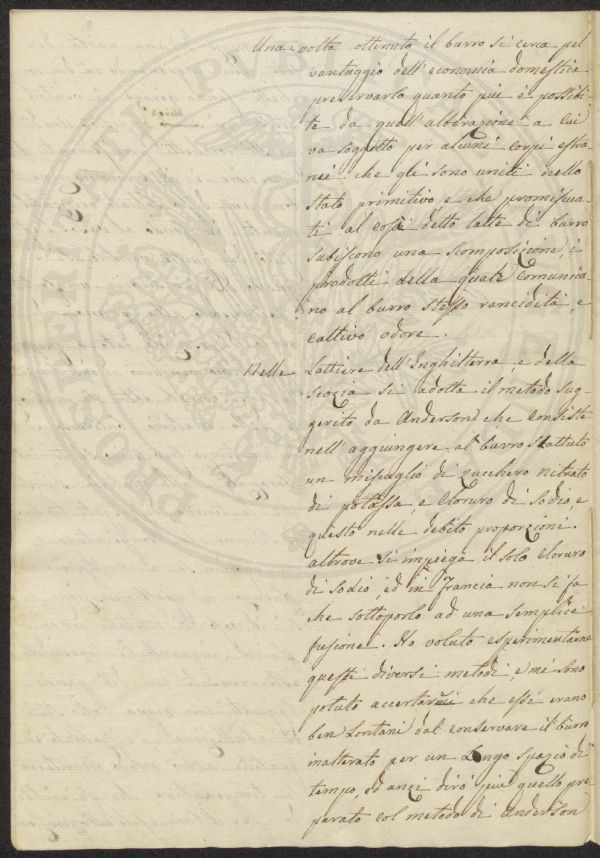 Una volta ottenuto il burro si cerca pel
vantaggio dell'economia domestica
preservarlo quanto più è possibi-
le da quell'alterazione a cui
va soggetto per alcuni corpi estra-
nei che gli sono uniti nello
stato primitivo, e che promiscua-
ti al così detto latte di burro
subiscono una scomposizione, i
prodotti della quale comunica-
no al burro stesso rancidità, e
cattivo odore.
Nelle Lattiere dell'Inghilterra, e della
Scozia si adotta il metodo sug-
gerito da Anderson che consiste
nell'aggiungere al burro sbattuto
un miscuglio di zucchero nitrato
di potassa, e Cloruro di Sodio, e
questo nelle debite proporzioni.
altrove si impiega il solo Cloruro
di Sodio, ed in Francia non si fa
che sottoporlo ad una semplice
fusione. Ho voluto esperimentare
questi diversi metodi, e mi sono
potuto accertarmi che essi erano
ben lontani dal conservare il burro
inalterato per un longo spazio di
tempo, ed anzi dirò più quello pre-
parato col metodo di Anderson